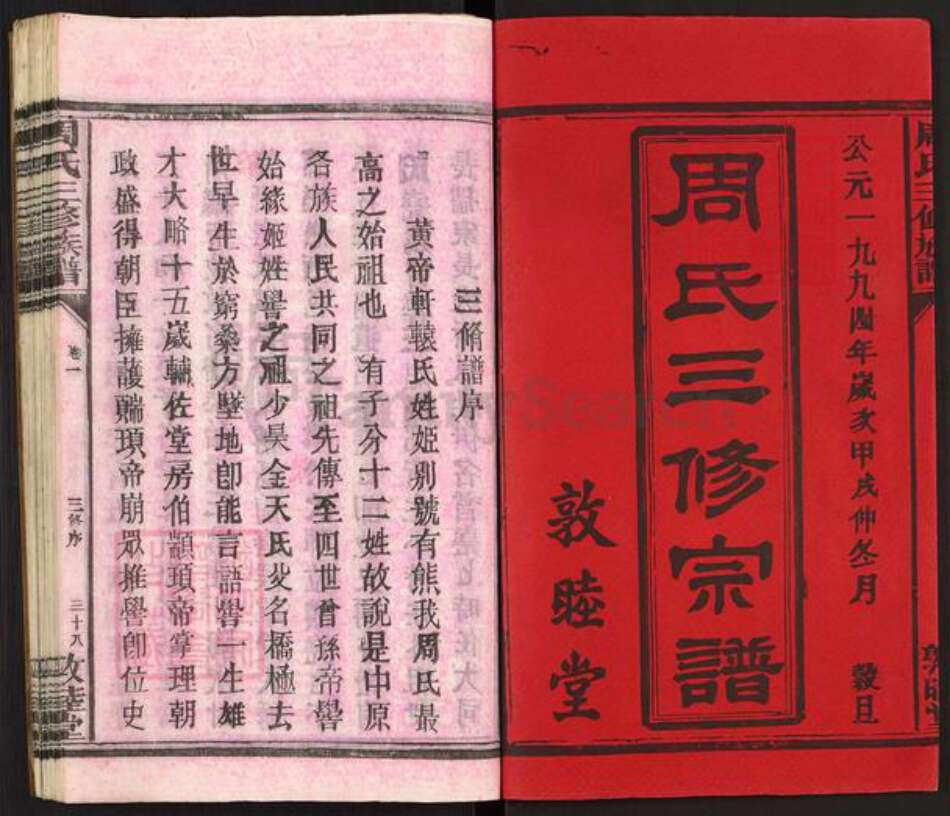 公元一九九四年歲次甲戌仲冬月　穀旦
周氏三修宗譜
敦睦堂
三脩譜序
黃帝軒轅氏姓姬別號有熊我周氏最
高之始祖也　有子分十二姓故說是中原
各族人民共同之祖先傳至四世曾孫帝嚳
始緣姬姓嚳之祖少昊金天氏父名橋極去
世早生於窮桑方墜地卽能言語嚳一生雄
才大略十五歲輔佐堂房伯顓頊帝掌理朝
政盛得朝臣擁護顓頊帝崩眾推嚳卽位史
周氏三修族譜
卷一
三修序
三十八
敦睦堂